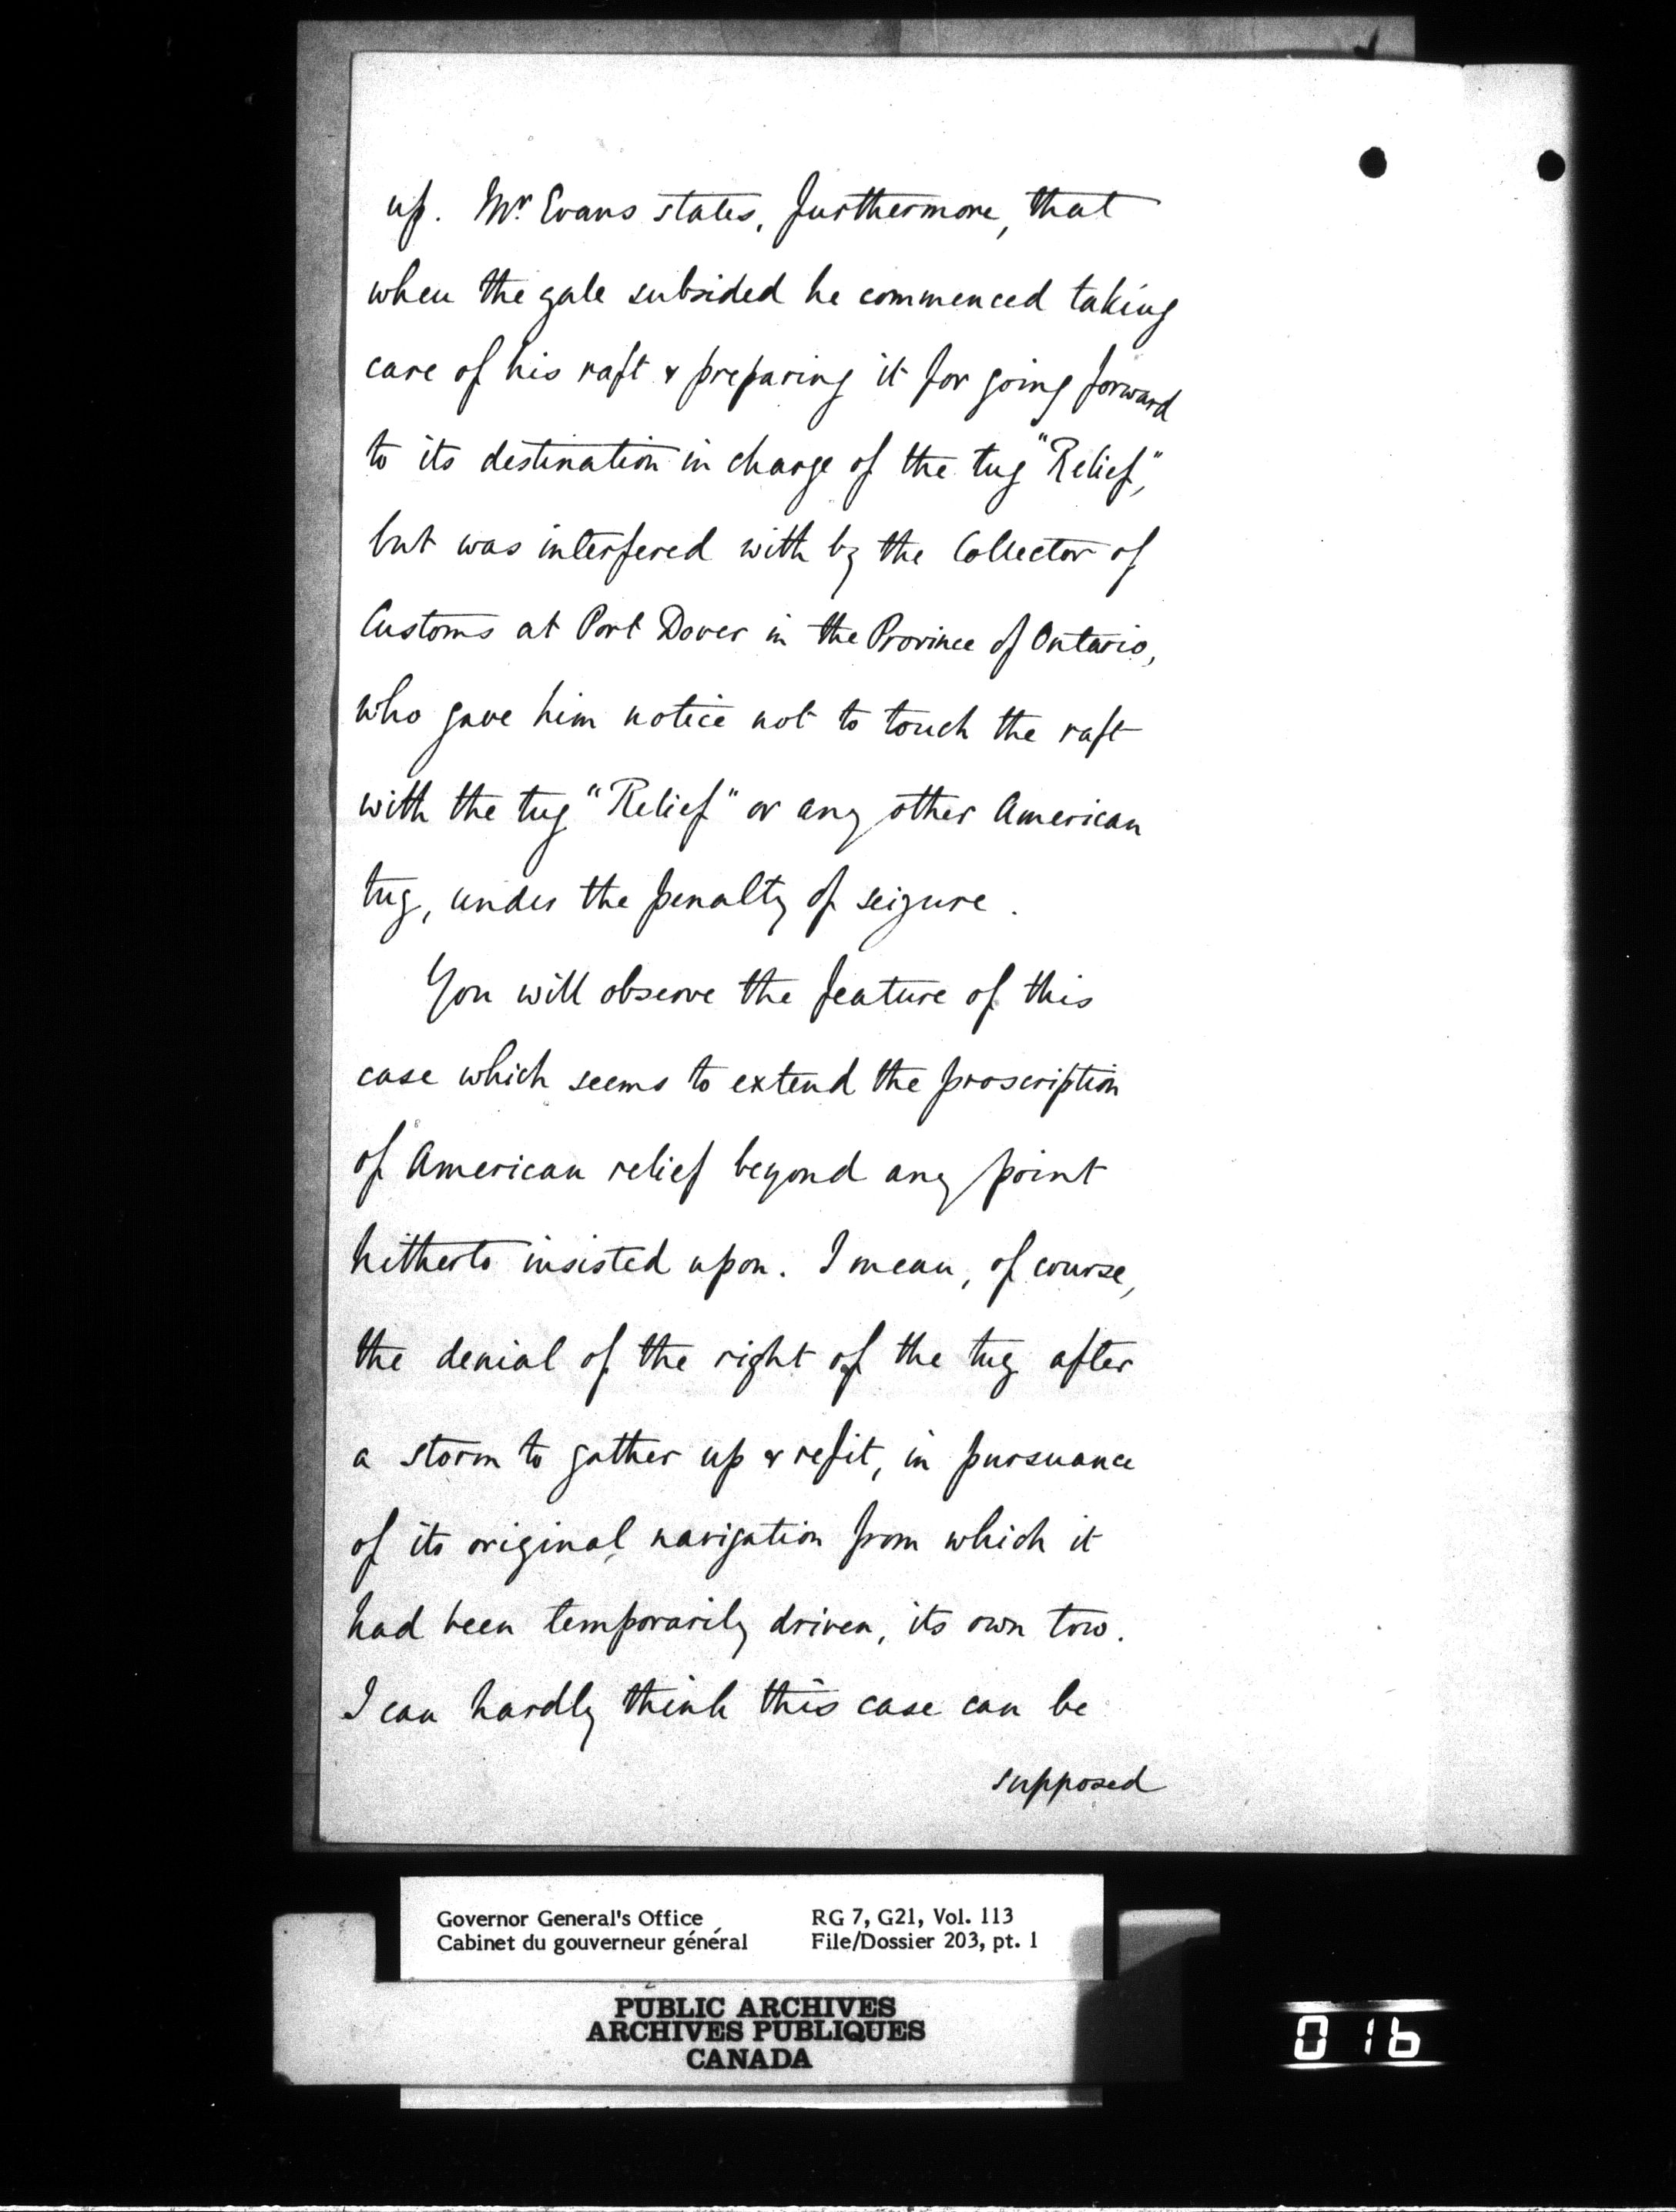 up. Mr. Evans states, furthermore, that
when the gale subsided he commenced taking
care of his raft & preparing it for going forward
to its destination in charge of the tug "Relief,"
but was interfered with by the Collector of
Customs at Port Dover in the Province of Ontario,
who gave him notice not to touch the raft
with the tug "Relief" or any other American
tug, under the penalty of seizure.
You will observe the feature of this
case which seems to extend the proscription
of American relief beyond any point
hitherto insisted upon. I mean, of course,
the denial of the right of the tug after
a storm to gather up & refit, in pursuance
of its original navigation from which it
had been temporarily driven, its own tow.
I can hardly think this case can be
supposed
Governor General's Office RG 7, G21, Vol. 113
Cabinet du gouverneur général File/Dossier 203, pt. 1
PUBLIC ARCHIVES
ARCHIVES PUBLIQUES
CANADA
016